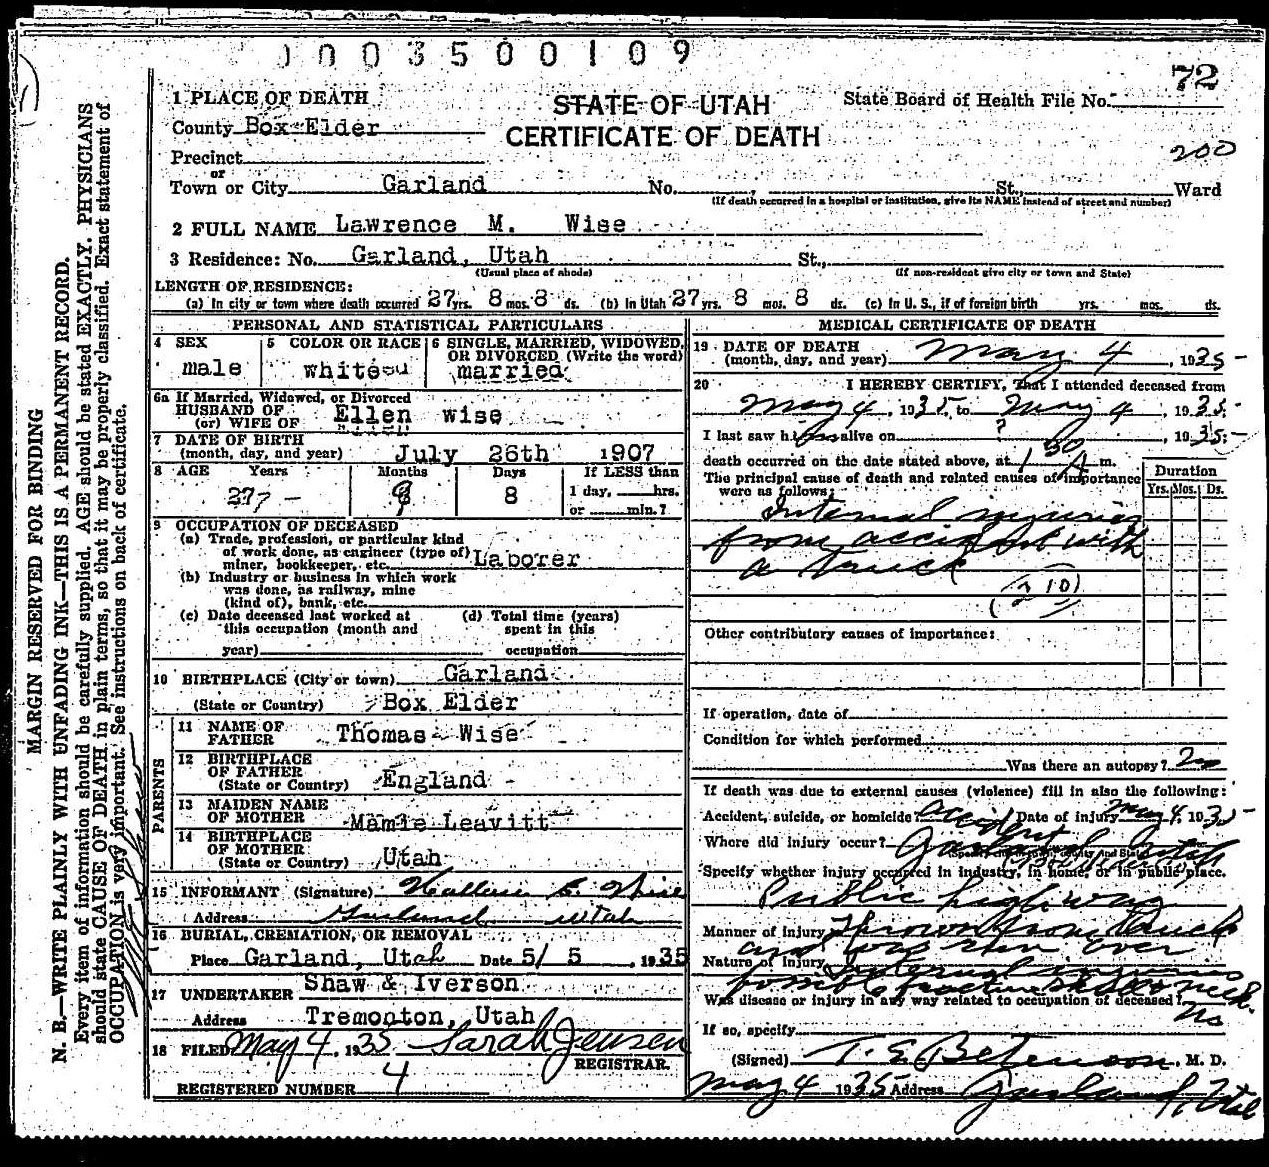 1003500109
72
1 PLACE OF DEATH
STATE OF UTAH
State Board of Health File No.
County Box Elder
CERTIFICATE OF DEATH
200
Precinct
or
Town or City Garland No. , St., Ward
(If death occurred in a hospital or institution, give its NAME instead of street and number)
2 FULL NAME Lawrence M. Wise
3 Residence: No. Garland, Utah St.,
(Usual place of abode) (If non-resident give city or town and State)
LENGTH OF RESIDENCE:
(a) In city or town where death occurred 27 yrs. 8 mos. 8 ds. (b) In Utah 27 yrs. 8 mos. 8 ds. (c) In U. S., if of foreign birth yrs. mos. ds.
PERSONAL AND STATISTICAL PARTICULARS
4 SEX
male
5 COLOR OR RACE
white
6 SINGLE, MARRIED, WIDOWED,
OR DIVORCED (Write the word)
married
6a If Married, Widowed, or Divorced
HUSBAND OF
(or) WIFE OF Ellen wise
7 DATE OF BIRTH
(month, day, and year) July 26th 1907
8 AGE Years Months Days If LESS than
27 8 1 day, hrs.
or min.?
9 OCCUPATION OF DECEASED
(a) Trade, profession, or particular kind
of work done, as engineer (type of)
miner, bookkeeper, etc. Laborer
(b) Industry or business in which work
was done, as railway, mine
(kind of), bank, etc.
(c) Date deceased last worked at
this occupation (month and
year)
(d) Total time (years)
spent in this
occupation
10 BIRTHPLACE (City or town) Garland
(State or Country) Box Elder
PARENTS
11 NAME OF
FATHER Thomas Wise
12 BIRTHPLACE
OF FATHER
(State or Country) England
13 MAIDEN NAME
OF MOTHER Mamie Leavitt
14 BIRTHPLACE
OF MOTHER
(State or Country) Utah
15 INFORMANT (Signature) Wise
Address Garland Utah
16 BURIAL, CREMATION, OR REMOVAL
Place Garland, Utah Date 5/ 5 , 1935
17 UNDERTAKER Shaw & Iverson
Address Tremonton, Utah
18 FILED May 4, 1935 Sarah Jensen
REGISTRAR.
REGISTERED NUMBER 4
MEDICAL CERTIFICATE OF DEATH
19 DATE OF DEATH
(month, day, and year) May 4 , 1935
20 I HEREBY CERTIFY, That I attended deceased from
May 4, 1935, to May 4, 1935
I last saw him alive on ? , 1935
death occurred on the date stated above, at 1 30 A m.
The principal cause of death and related causes of importance
were as follows:
Duration
Yrs. Mos. Ds.
Internal injuries
from accident with
a truck
(210)
Other contributory causes of importance:
If operation, date of
Condition for which performed
Was there an autopsy? no
If death was due to external causes (violence) fill in also the following:
Accident, suicide, or homicide? accident Date of injury May 4, 1935
Where did injury occur? Garland Utah
Specify whether injury occurred in industry, in home, or in public place.
Public highway
Manner of injury Thrown from truck
and was run over
Nature of injury Internal injuries
possible fracture neck.
Was disease or injury in any way related to occupation of deceased?
No
If so, specify
(Signed) T. E. Betenson, M. D.
May 4 1935 Address Garland, Utah
MARGIN RESERVED FOR BINDING
N. B.—WRITE PLAINLY WITH UNFADING INK—THIS IS A PERMANENT RECORD.
Every item of information should be carefully supplied. AGE should be stated EXACTLY. PHYSICIANS
should state CAUSE OF DEATH in plain terms, so that it may be properly classified. Exact statement of
OCCUPATION is very important. See instructions on back of certificate.